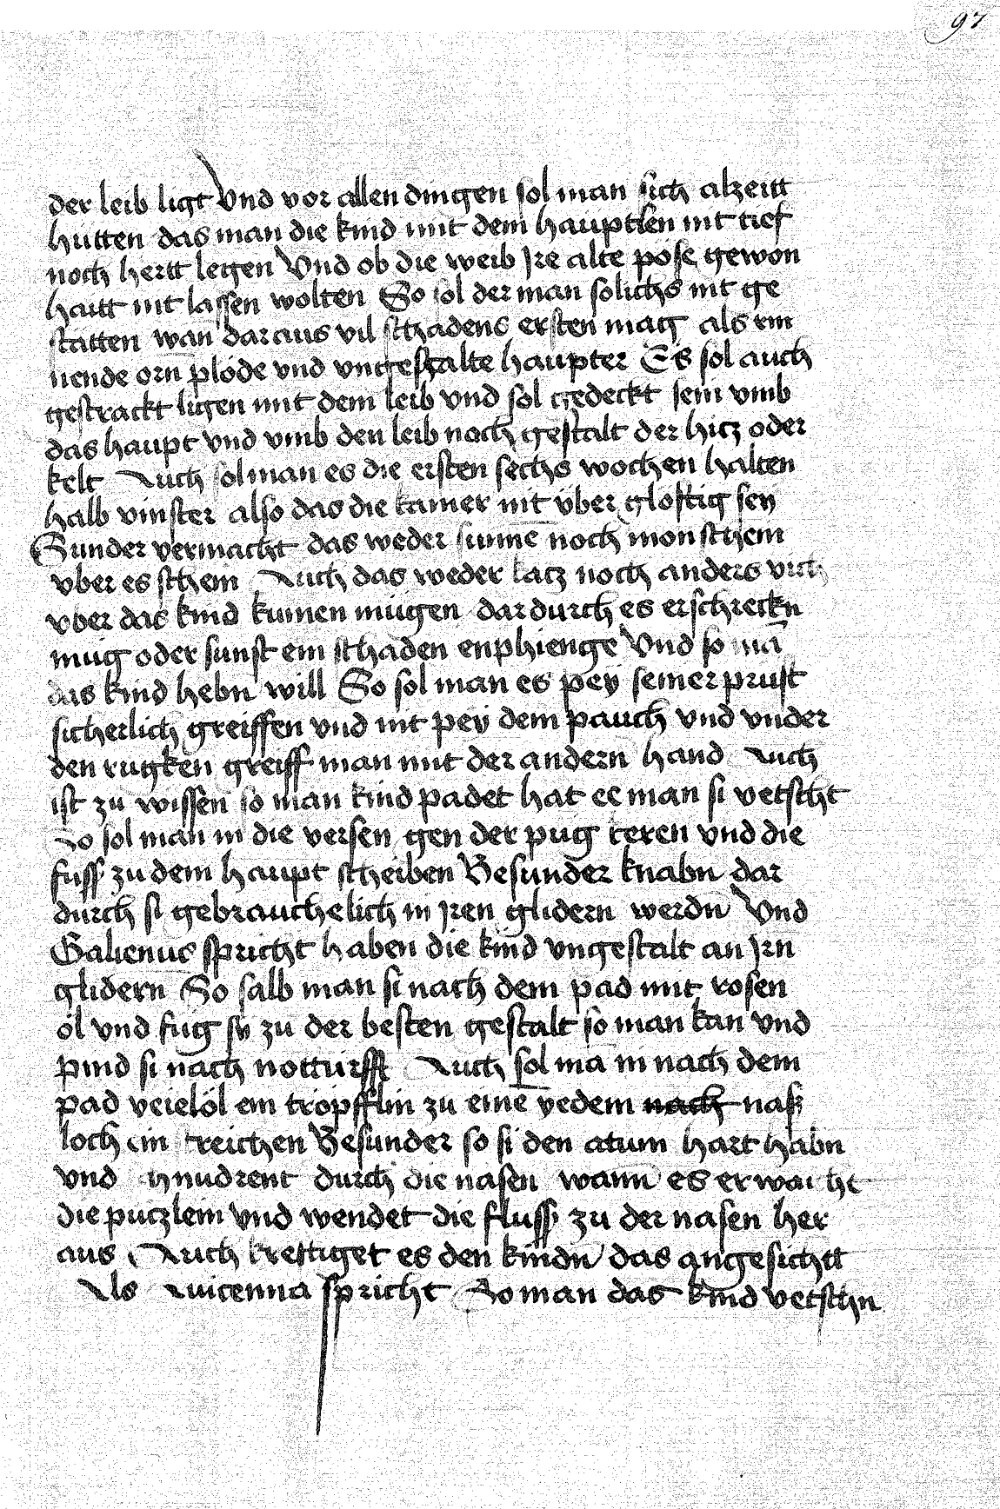 97
der leib ligt Vnd vor allen dingen sol man sich alzeitt
hutten das man die kind mit dem hauptlen nit tief
noch hertt legen Vnd ob die weib Jre alte pöse gewon
hartt nit lassen wolten So sol der man solichs nit ge
statten wan daraus vil schadens ersten mag als rin
nende orn̄ plöde vnd vngestalte haupter Es sol auch
gestrackt ligen mit dem leib vnd sol gedeckt sein vmb
das haupt vnd vmb den leib noch gestalt der hitz oder
kelt Auch sol man es die ersten sechs wochen halten
halb vinster also das die kamer nit vber glostig seÿ
Sunder vermacht das weder sunnē noch mon schein
vber es schein Auch das weder katz noch anders vich
vber das kind kumen mügen dardurch es erschreckn
müg oder sunst ein schaden enphienge Vnd so mā
das kind hebn will So sol man es peÿ seiner prust
sicherlich greiffen vnd nit peÿ dem pauch vnd vnder
den rugken greiff man mit der andern hand Auch
ist zu wissen so man kind padet hat ee man si vetscht
So sol man in die versen gen der püg keren vnd die
fuss zu dem haupt scheiben Besunder knabn dar
durch si gebrauchelich in Jren glidern werdn Vnd
Galienus spricht haben die kind vngestalt an Jrn
glidern So salb man si nach dem pad mit rosen
öl vnd füg sÿ zu der besten gestalt so man kan vnd
pind si nach notturfft Auch sol mā in nach dem
pad veielöl ein tröpfflin zu einē yedem nach nas
loch ein streichen Besunder so si den atum hart habn
vnd durch die nasen wann es erwaicht
die putzlein vnd wendet die fluss zu der nasen her
aus Auch krettiget es den kindn das angesichtt
Als Auicenna spricht So man das kind vetschn